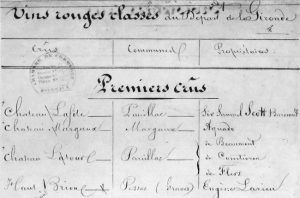 Vins rouges classés du Départ de la Gironde
Crûs Communes Propriétaires
Premiers Crûs
Chateau Lafite Pauillac Sir Samuel Scott Baronnet
Chateau Margaux Margaux Aguado
de Beaumont
Chateau Latour Pauillac de Courtivron
de Flers
Haut Brion Pessac (Graves) Eugène Larrieu